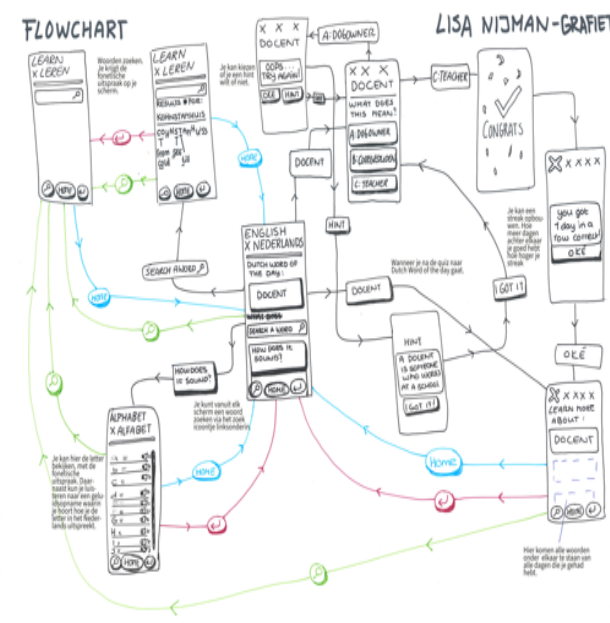 FLOWCHART
LISA NIJMAN-GRAFIET
LEARN
X LEREN
HOME
Woorden zoeken.
Je krijgt de
fonetische
uitspraak op je
scherm.
LEARN
X LEREN
HOME
Je kan kiezen
of je een hint
wilt of niet.
X X X
DOCENT
OOPS...
TRY AGAIN!
OKE
HINT
A: DOGOWNER
XX X
DOCENT
WHAT DOES
THIS MEAN?
A: DOGOWNER
C: TEACHER
C: TEACHER
CONGRATS
X X X X
you got
1 day in a
row correct!
OKÉ
Je kan een
streak opbou-
wen. Hoe
meer dagen
achter elkaar
je goed hebt
hoe hoger je
streak
HOME
DOCENT
HINT
ENGLISH
X NEDERLANDS
DUTCH WORD OF
THE DAY:
DOCENT
SEARCH A WORD
HOW DOES IT
SOUND?
HOME
SEARCH A WORD
HOME
Wanneer je na de quiz naar
Dutch Word of the day gaat.
DOCENT
I GOT IT!
HINT
A DOCENT
IS SOMEONE
WHO WORKS
AT A SCHOOL
I GOT IT!
OKÉ
HOW DOES
IT SOUND?
Je kont vanuit elk
scherm een woord
zoeken via het zoek
icoontje linksonderin.
X X X X
LEARN MORE
ABOUT:
DOCENT
HOME
ALPHABET
X ALFABET
HOME
Je kan hier de letter
bekijken, met de
fonetische
uitspraak. Daar-
naast kun je luis-
teren naar een gelu-
idsopname waarin
je hoort hoe je de
letter in het Neder-
lands uitspreekt.
HOME
Home
Hier komen alle woorden
onder elkaar te staan van
alle dagen die je gehad
hebt.